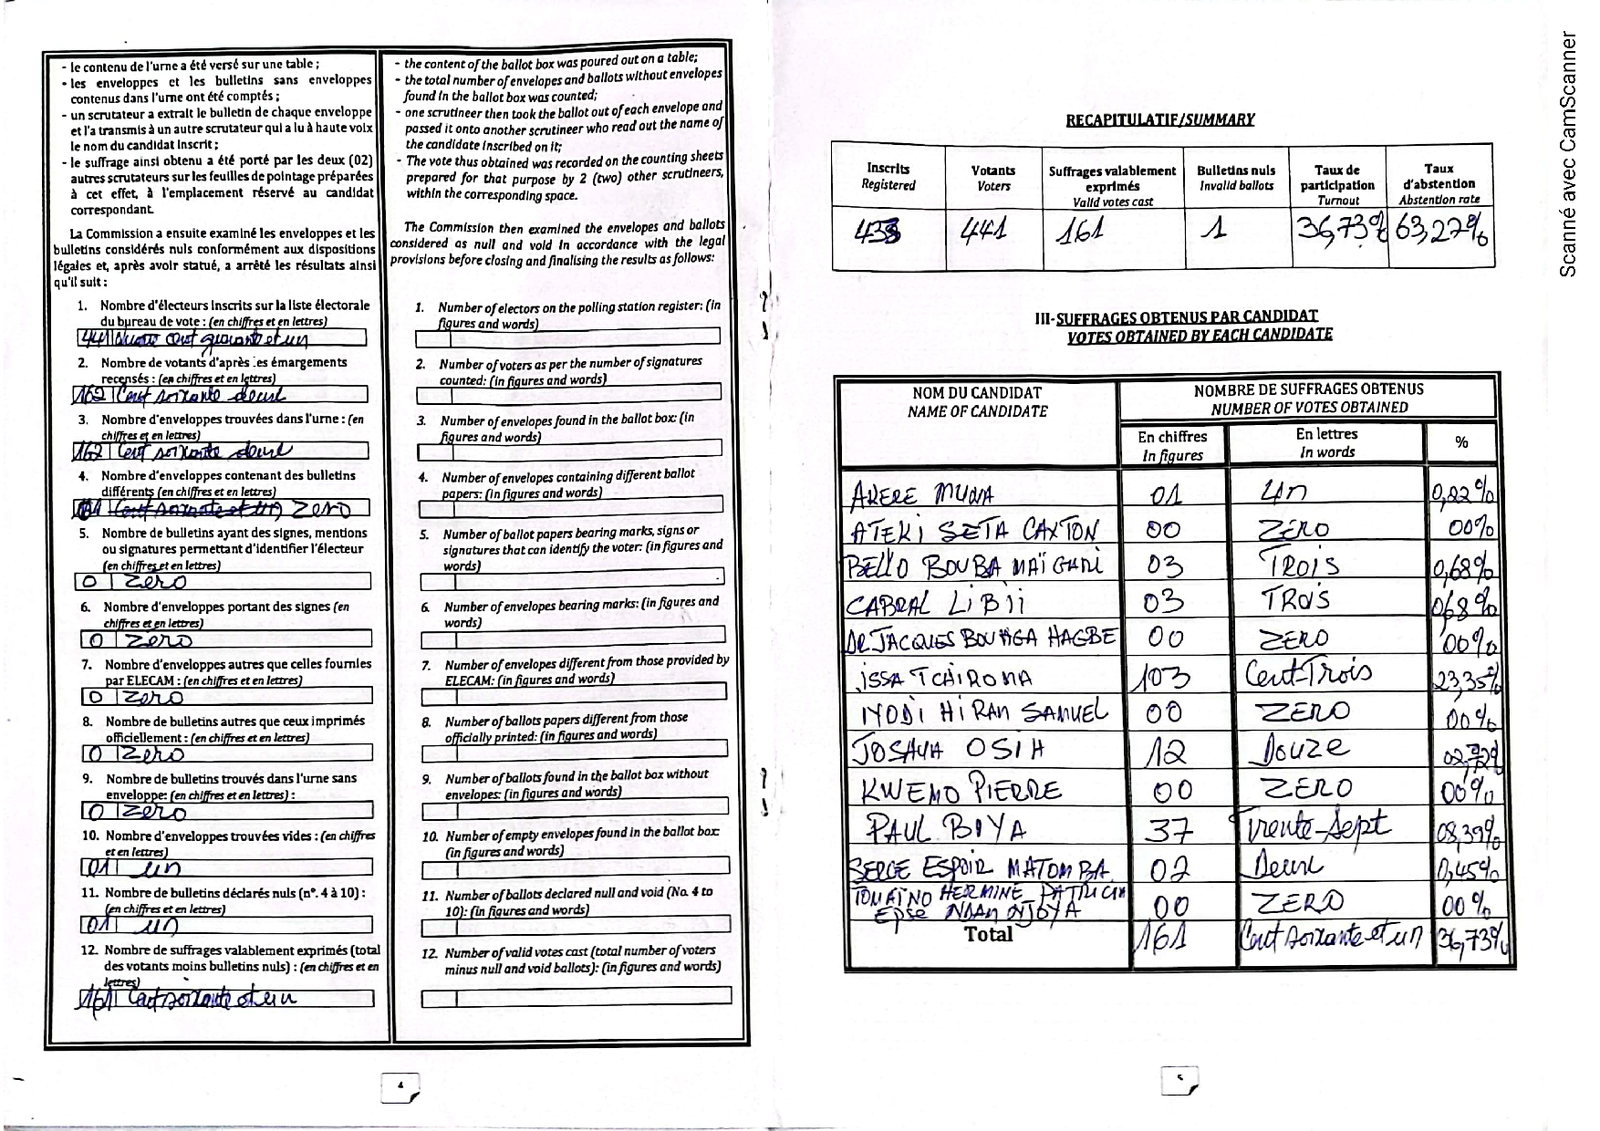 - le contenu de l'urne a été versé sur une table ;
- les enveloppes et les bulletins sans enveloppes
contenus dans l'urne ont été comptés ;
- un scrutateur a extrait le bulletin de chaque enveloppe
et l'a transmis à un autre scrutateur qui a lu à haute voix
le nom du candidat inscrit ;
- le suffrage ainsi obtenu a été porté par les deux (02)
autres scrutateurs sur les feuilles de pointage préparées
à cet effet, à l'emplacement réservé au candidat
correspondant.
La Commission a ensuite examiné les enveloppes et les
bulletins considérés nuls conformément aux dispositions
légales et, après avoir statué, a arrêté les résultats ainsi
qu'il suit :
1. Nombre d'électeurs inscrits sur la liste électorale
du bureau de vote : (en chiffres et en lettres)
441 Quatre cent quarante et un
2. Nombre de votants d'après les émargements
recensés : (en chiffres et en lettres)
162 Cent soixante deux
3. Nombre d'enveloppes trouvées dans l'urne : (en
chiffres et en lettres)
162 Cent soixante deux
4. Nombre d'enveloppes contenant des bulletins
différents (en chiffres et en lettres)
Cent soixante et un Zero
5. Nombre de bulletins ayant des signes, mentions
ou signatures permettant d'identifier l'électeur
(en chiffres et en lettres)
0 Zero
6. Nombre d'enveloppes portant des signes (en
chiffres et en lettres)
0 Zero
7. Nombre d'enveloppes autres que celles fournies
par ELECAM : (en chiffres et en lettres)
0 Zero
8. Nombre de bulletins autres que ceux imprimés
officiellement : (en chiffres et en lettres)
0 Zero
9. Nombre de bulletins trouvés dans l'urne sans
enveloppe: (en chiffres et en lettres) :
0 Zero
10. Nombre d'enveloppes trouvées vides : (en chiffres
et en lettres)
01 un
11. Nombre de bulletins déclarés nuls (n°. 4 à 10) :
(en chiffres et en lettres)
01 un
12. Nombre de suffrages valablement exprimés (total
des votants moins bulletins nuls) : (en chiffres et en
lettres)
161 Cent soixante et un
- the content of the ballot box was poured out on a table;
- the total number of envelopes and ballots without envelopes
found in the ballot box was counted;
- one scrutineer then took the ballot out of each envelope and
passed it onto another scrutineer who read out the name of
the candidate inscribed on it;
- The vote thus obtained was recorded on the counting sheets
prepared for that purpose by 2 (two) other scrutineers,
within the corresponding space.
The Commission then examined the envelopes and ballots
considered as null and void in accordance with the legal
provisions before closing and finalising the results as follows:
1. Number of electors on the polling station register: (in
figures and words)
2. Number of voters as per the number of signatures
counted: (in figures and words)
3. Number of envelopes found in the ballot box: (in
figures and words)
4. Number of envelopes containing different ballot
papers: (in figures and words)
5. Number of ballot papers bearing marks, signs or
signatures that can identify the voter: (in figures and
words)
6. Number of envelopes bearing marks: (in figures and
words)
7. Number of envelopes different from those provided by
ELECAM: (in figures and words)
8. Number of ballots papers different from those
officially printed: (in figures and words)
9. Number of ballots found in the ballot box without
envelopes: (in figures and words)
10. Number of empty envelopes found in the ballot box:
(in figures and words)
11. Number of ballots declared null and void (No. 4 to
10): (in figures and words)
12. Number of valid votes cast (total number of voters
minus null and void ballots): (in figures and words)
4
RECAPITULATIF/SUMMARY
Inscrits Registered Votants Voters Suffrages valablement exprimés Valid votes cast Bulletins nuls Invalid ballots Taux de participation Turnout Taux d'abstention Abstention rate
441 161 1 36,73% 63,27%
III-SUFFRAGES OBTENUS PAR CANDIDAT
VOTES OBTAINED BY EACH CANDIDATE
NOM DU CANDIDAT NOMBRE DE SUFFRAGES OBTENUS
NAME OF CANDIDATE NUMBER OF VOTES OBTAINED
En chiffres En lettres %
In figures In words
AKERE MUNA 01 Un 0,22%
ATEKI SETA CAXTON 00 ZERO 00%
BELLO BOUBA MAÏGARI 03 TROIS 0,68%
CABRAL LiBii 03 TROIS 0,68%
DR JACQUES BOUHGA HAGBE 00 ZERO 00%
ISSA TCHIROMA 103 Cent-Trois 23,35%
IYODI HIRAM SAMUEL 00 ZERO 00%
JOSHUA OSIH 12 Douze
KWEMO PIERRE 00 ZERO 00%
PAUL BIYA 37 Trente-Sept 08,39%
SERGE ESPOIR MATOMBA 02 Deux 0,45%
TOMAÏNO HERMINE PATRICIA
Epse NDAM NJOYA 00 ZERO 00%
Total 161 Cent soixante et un 36,73%
5
Scanné avec CamScanner